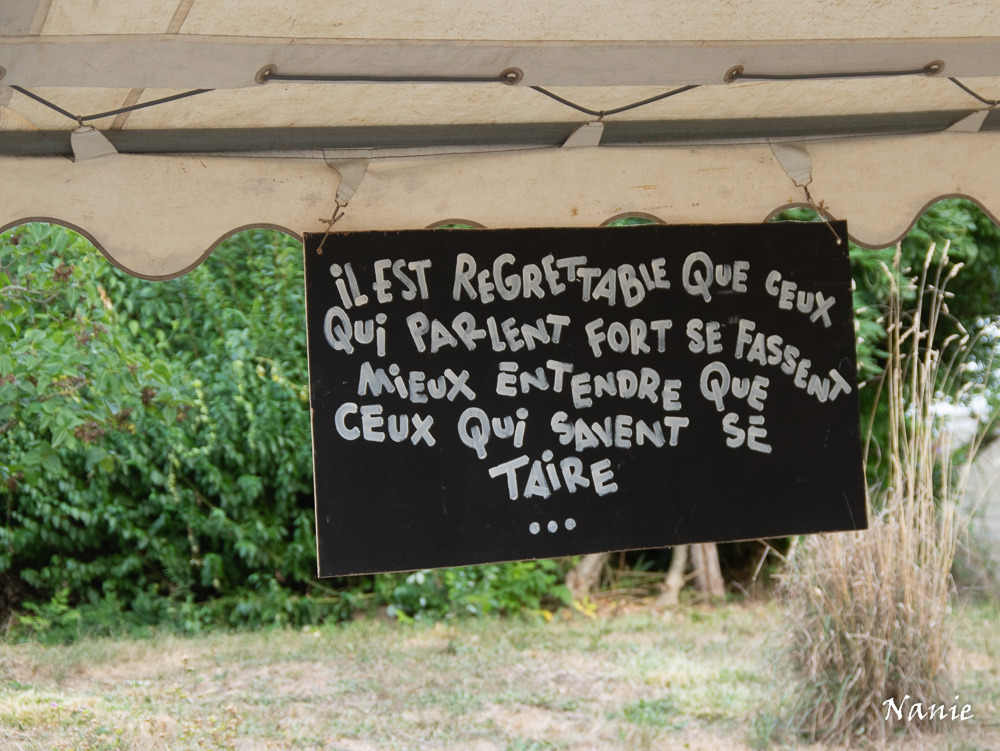 iL EST REGRETTABLE QUE CEUX
Qui PARLENT FORT SE FASSENT
MiEUX ENTENDRE QUE
CEUX Qui SAVENT SE
TAiRE
...
Nanie